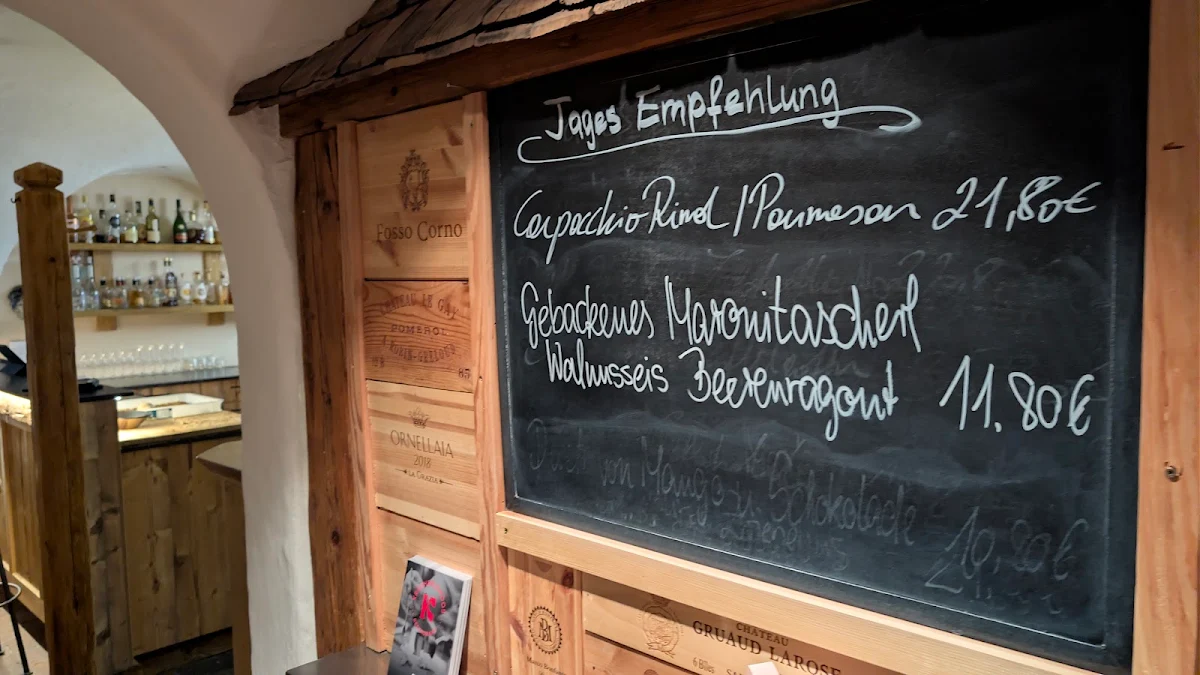 Tages Empfehlung
Carpacchio Rind / Parmesan 21,80€
Gebackenes Maronitascherl
Walnusseis Beerenragout 11.80€
von Mango u. Schokolade 10,80€
Fosso Corno
CHATEAU LE GAY
POMEROL
ORNELLAIA
2018
LA GRAZIA
CHATEAU
GRUAUD LAROSE
6 Btles